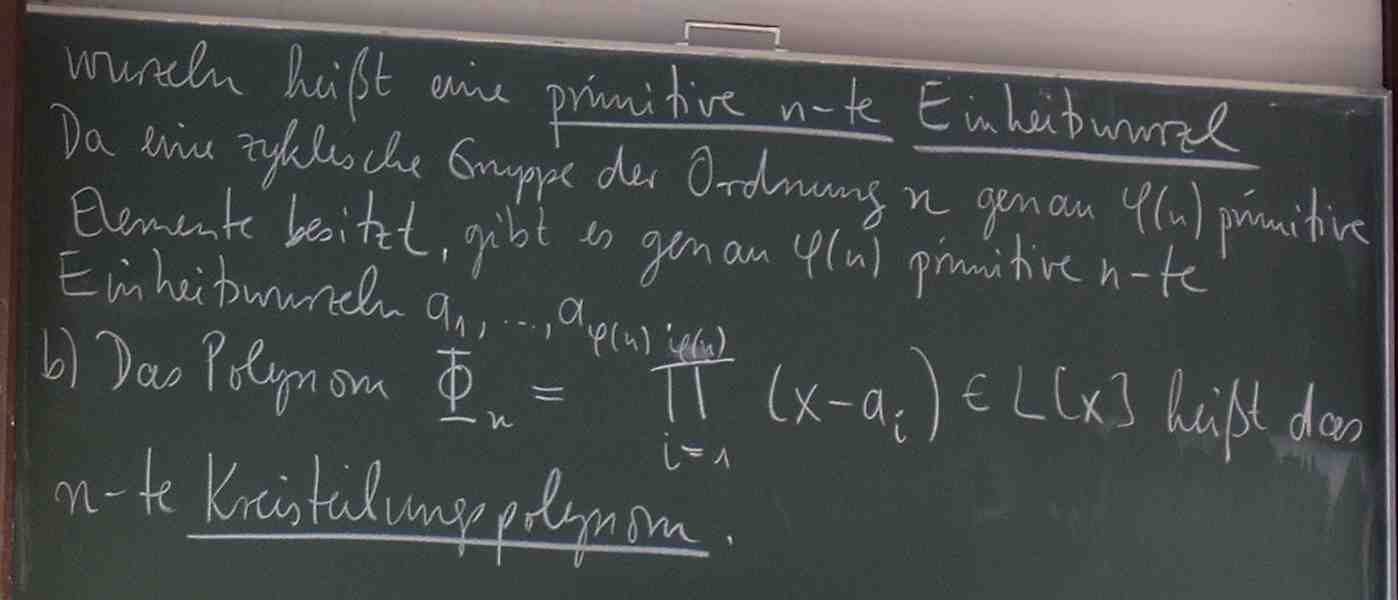 wurzeln heißt eine primitive n-te Einheitwurzel
Da eine zyklische Gruppe der Ordnung n genau φ(n) primitive
Elemente besitzt, gibt es genau φ(n) primitive n-te
Einheitwurzeln a₁, ..., a_φ(n)
b) Das Polynom Φₙ = ∏_{i=1}^{φ(n)} (x-aᵢ) ∈ L[x] heißt das
n-te Kreisteilungspolynom.